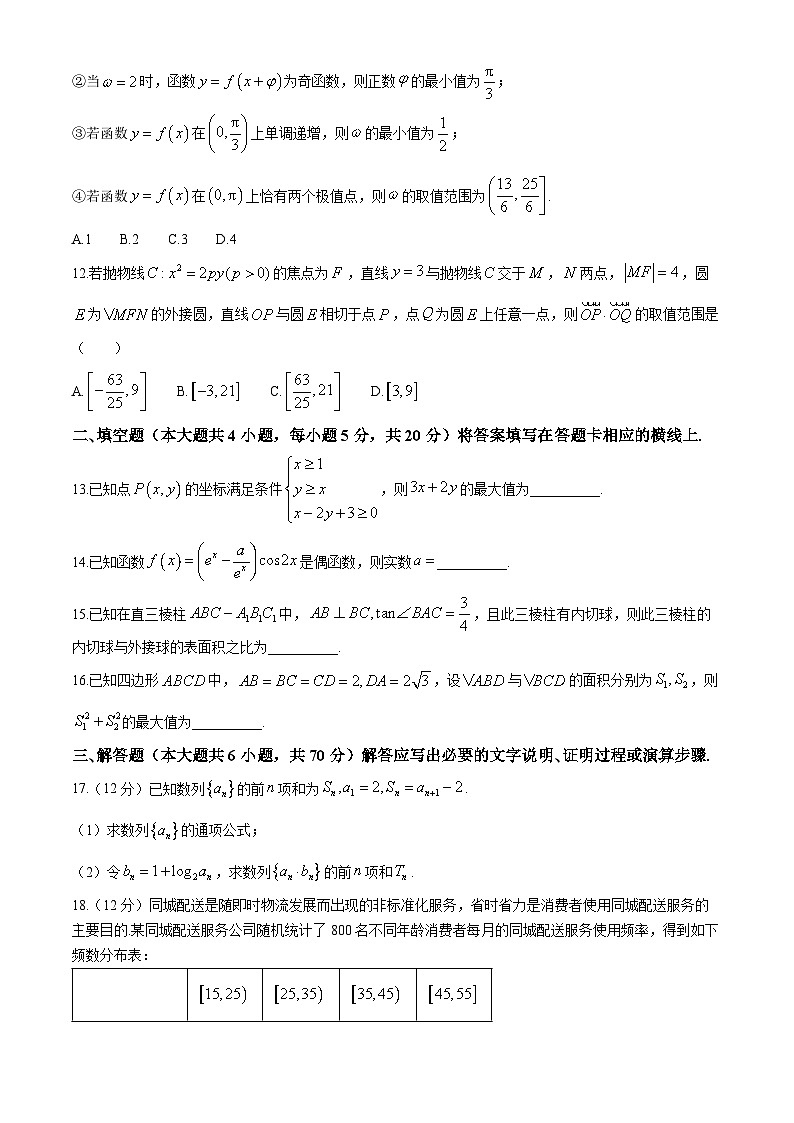 ②当ω=2时，函数y=f(x+φ)为奇函数，则正数φ的最小值为π/3；
③若函数y=f(x)在(0,π/3)上单调递增，则ω的最小值为1/2；
④若函数y=f(x)在(0,π)上恰有两个极值点，则ω的取值范围为(13/6,25/6].
A.1 B.2 C.3 D.4
12.若抛物线C:x²=2py(p>0)的焦点为F，直线y=3与抛物线C交于M，N两点，|MF|=4，圆
E为VMFN的外接圆，直线OP与圆E相切于点P，点Q为圆E上任意一点，则OP·OQ的取值范围是
（ ）
A.[-63/25,9] B.[-3,21] C.[63/25,21] D.[3,9]
二、填空题（本大题共4小题，每小题5分，共20分）将答案填写在答题卡相应的横线上.
13.已知点P(x,y)的坐标满足条件{x≥1 y≥x x-2y+3≥0，则3x+2y的最大值为__________.
14.已知函数f(x)=(eˣ-a/eˣ)cos2x是偶函数，则实数a=__________.
15.已知在直三棱柱ABC-A₁B₁C₁中，AB⊥BC,tan∠BAC=3/4，且此三棱柱有内切球，则此三棱柱的
内切球与外接球的表面积之比为__________.
16.已知四边形ABCD中，AB=BC=CD=2,DA=2√3，设VABD与VBCD的面积分别为S₁,S₂，则
S₁²+S₂²的最大值为__________.
三、解答题（本大题共6小题，共70分）解答应写出必要的文字说明、证明过程或演算步骤.
17.（12分）已知数列{aₙ}的前n项和为Sₙ,a₁=2,Sₙ=aₙ₊₁-2.
（1）求数列{aₙ}的通项公式；
（2）令bₙ=1+log₂aₙ，求数列{aₙ·bₙ}的前n项和Tₙ.
18.（12分）同城配送是随即时物流发展而出现的非标准化服务，省时省力是消费者使用同城配送服务的
主要目的.某同城配送服务公司随机统计了800名不同年龄消费者每月的同城配送服务使用频率，得到如下
频数分布表：
[15,25) [25,35) [35,45) [45,55]